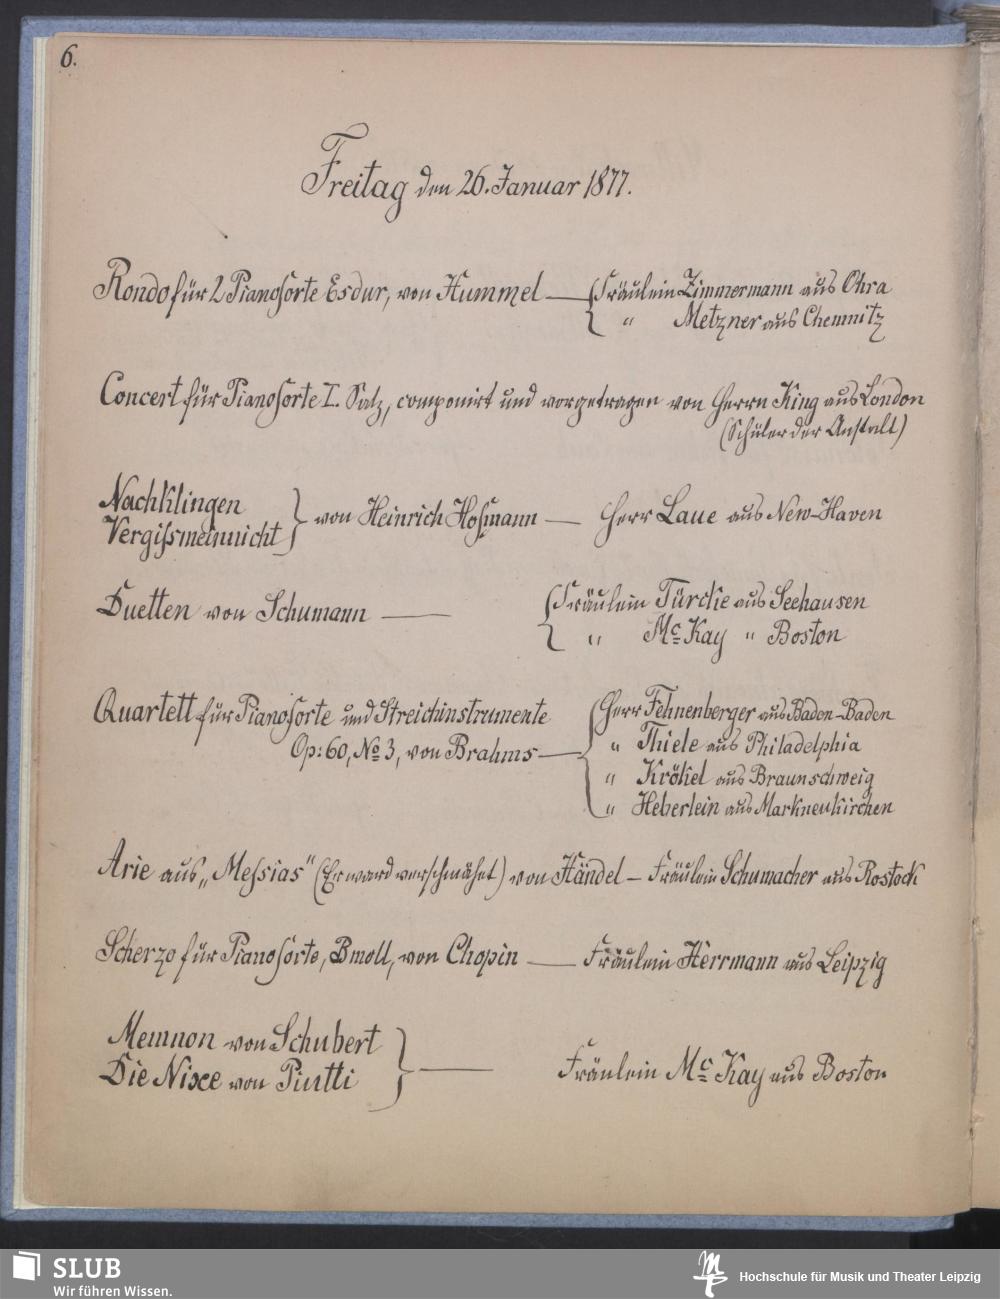 6.
Freitag den 26. Januar 1877.
Rondo für 2 Pianoforte Esdur, von Hummel — Fräulein Zimmermann aus Ohra
" Metzner aus Chemnitz
Concert für Pianoforte I. Satz, componirt und vorgetragen von Herrn King aus London
(Schüler der Anstalt)
Nachklingen
Vergißmeinnicht } von Heinrich Hofmann — Herr Laue aus New-Haven
Duetten von Schumann — Fräulein Türcke aus Seehausen
" Mc Kay " Boston
Quartett für Pianoforte und Streichinstrumente
Op: 60, No 3, von Brahms — Herr Fehnenberger aus Baden-Baden
" Thiele aus Philadelphia
" Krökel aus Braunschweig
" Heberlein aus Markneukirchen
Arie aus „Messias" (Er ward verschmähet) von Händel — Fräulein Schumacher aus Rostock
Scherzo für Pianoforte, Bmoll, von Chopin — Fräulein Herrmann aus Leipzig
Memnon von Schubert
Die Nixe von Piutti } — Fräulein Mc Kay aus Boston
SLUB
Wir führen Wissen.
Hochschule für Musik und Theater Leipzig